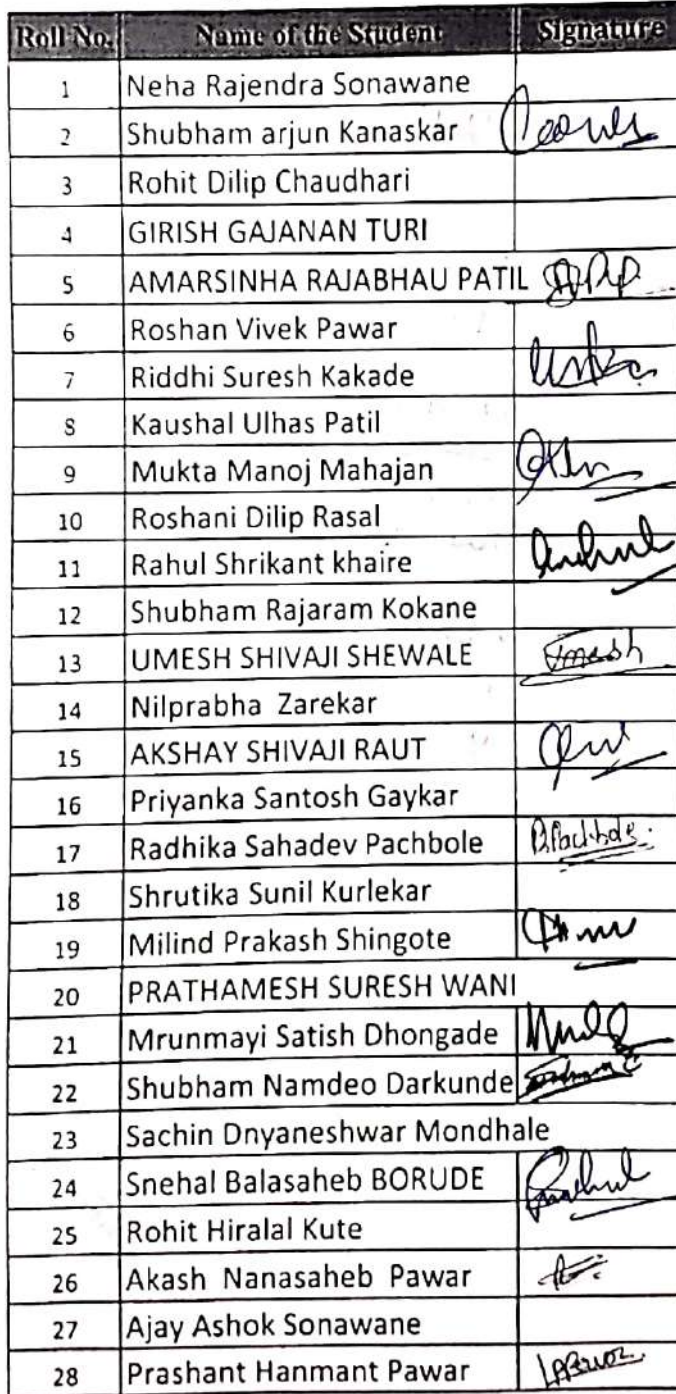 Roll No. Name of the Student Signature
1 Neha Rajendra Sonawane
2 Shubham arjun Kanaskar
3 Rohit Dilip Chaudhari
4 GIRISH GAJANAN TURI
5 AMARSINHA RAJABHAU PATIL
6 Roshan Vivek Pawar
7 Riddhi Suresh Kakade
8 Kaushal Ulhas Patil
9 Mukta Manoj Mahajan
10 Roshani Dilip Rasal
11 Rahul Shrikant khaire
12 Shubham Rajaram Kokane
13 UMESH SHIVAJI SHEWALE Umesh
14 Nilprabha Zarekar
15 AKSHAY SHIVAJI RAUT
16 Priyanka Santosh Gaykar
17 Radhika Sahadev Pachbole
18 Shrutika Sunil Kurlekar
19 Milind Prakash Shingote
20 PRATHAMESH SURESH WANI
21 Mrunmayi Satish Dhongade
22 Shubham Namdeo Darkunde
23 Sachin Dnyaneshwar Mondhale
24 Snehal Balasaheb BORUDE
25 Rohit Hiralal Kute
26 Akash Nanasaheb Pawar
27 Ajay Ashok Sonawane
28 Prashant Hanmant Pawar